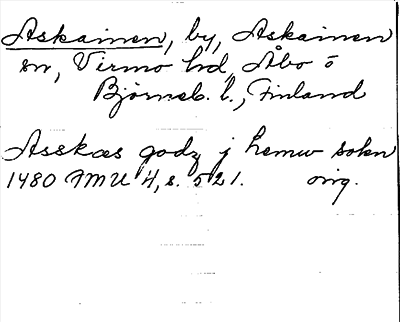 Askainen, by, Askainen
sn, Virmo hd, Åbo o
Björneb. l., Finland
Asskas godz j hemw sokn
1480 FMU 4, s. 521. orig.